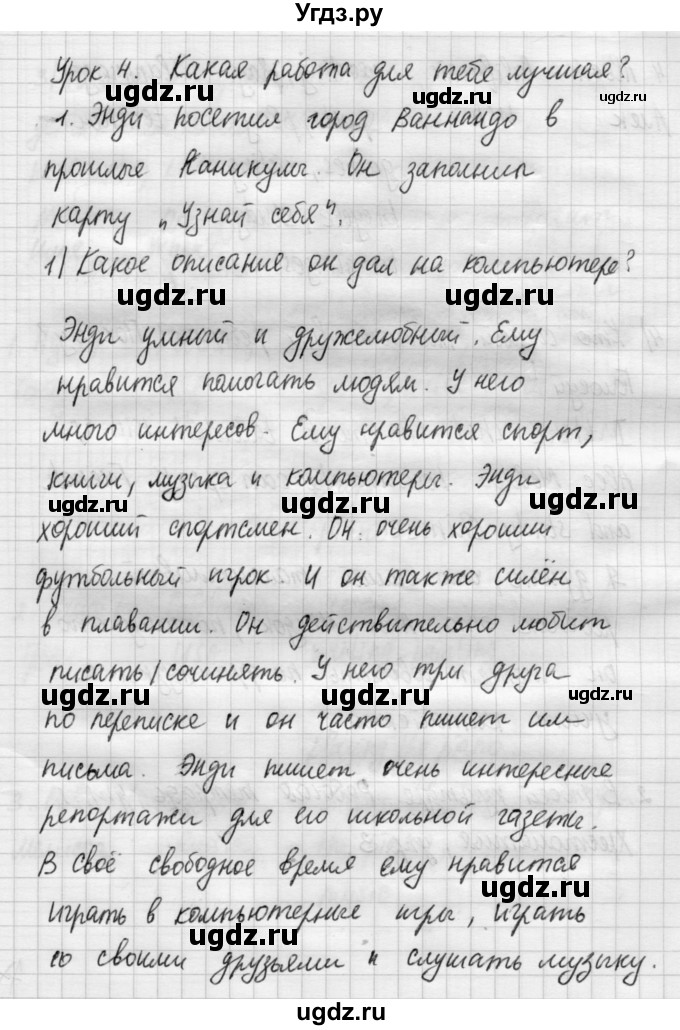 Угдз.ру
Урок 4. Какая работа для тебе лучшая?
ugdz.ru ugdz.ru ugdz.ru
1. Энди посетил город Ваннандо в
прошлые каникулы. Он заполнил
карту „Узнай себя“.
1) Какое описание он дал на компьютере?
ugdz.ru ugdz.ru
Энди умный и дружелюбный. Ему
нравится помогать людям. У него
много интересов. Ему нравится спорт,
книги, музыка и компьютеры. Энди
ugdz.ru ugdz.ru ugdz.ru
хороший спортсмен. Он очень хороший
футбольный игрок И он также силён
в плавании. Он действительно любит
писать/сочинять. У него три друга
ugdz.ru ugdz.ru ugdz.ru
по переписке и он часто пишет им
письма. Энди пишет очень интересные
репортажи для его школьной газеты.
В своё свободное время ему нравится
ugdz.ru
играть в компьютерные игры, играть
ugdz.ru
со своими друзьями и слушать музыку.
ugdz.ru